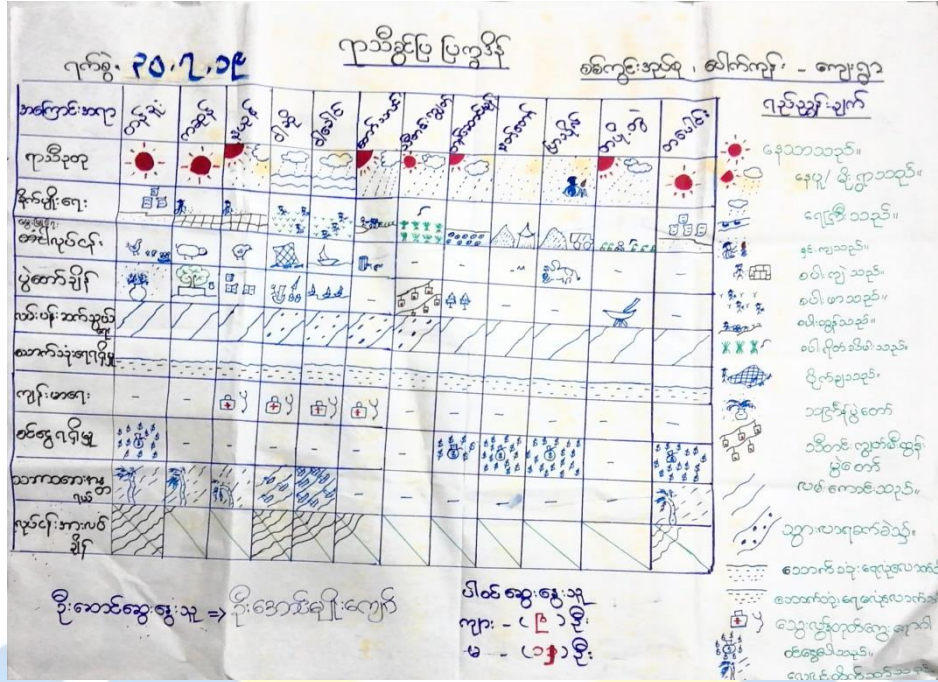 ရာသီခွင်ပြ ပြက္ခဒိန်
ရက်စွဲ၊ ၃၀.၇.၁၉
စစ်ကွင်းအုပ်စု၊ ပေါက်ကုန်း - ကျေးရွာ
အကြောင်းအရာ တန်ခူး ကဆုန် နယုန် ဝါဆို ဝါခေါင် တော်သလင်း သီတင်းကျွတ် တန်ဆောင်မုန်း နတ်တော် ပြာသို တပို့တွဲ တပေါင်း
ရာသီဥတု
စိုက်ပျိုးရေး
အခြားလုပ်ငန်း
ပွဲတော်ချိန်
လမ်းပန်းဆက်သွယ်မှု
သောက်သုံးရေရရှိမှု
ကျန်းမာရေး
ဝင်ငွေရရှိမှု
သဘာဝဘေးအန္တရာယ်
လုပ်ငန်းအားလပ်ချိန်
ရည်ညွှန်းချက်
နေသာသည်။
နေပူ/ မိုးရွာသည်။
ရေကြီးသည်။
နှင်းကျသည်။
စပါးကြဲသည်။
စပါး
စပါး
စပါးရိတ်သိမ်းသည်။
ပိုက်ချသည်။
သင်္ကြန်ပွဲတော်
သီတင်းကျွတ်မီးထွန်း
ပွဲတော်
လမ်းကောင်းသည်။
သွားလာရခက်ခဲသည်။
သောက်သုံးရေလုံလောက်
သောက်သုံးရေမလုံလောက်
သွေးလွန်တုပ်ကွေးရောဂါ
ဝင်ငွေပေါသည်။
လေပြင်းတိုက်ခတ်သည်
ဦးဆောင်ဆွေးနွေးသူ ⇒ ဦးအောင်မျိုးကျော်
ပါဝင်ဆွေးနွေးသူ
ကျား - (၉) ဦး
မ - (၁၃) ဦး